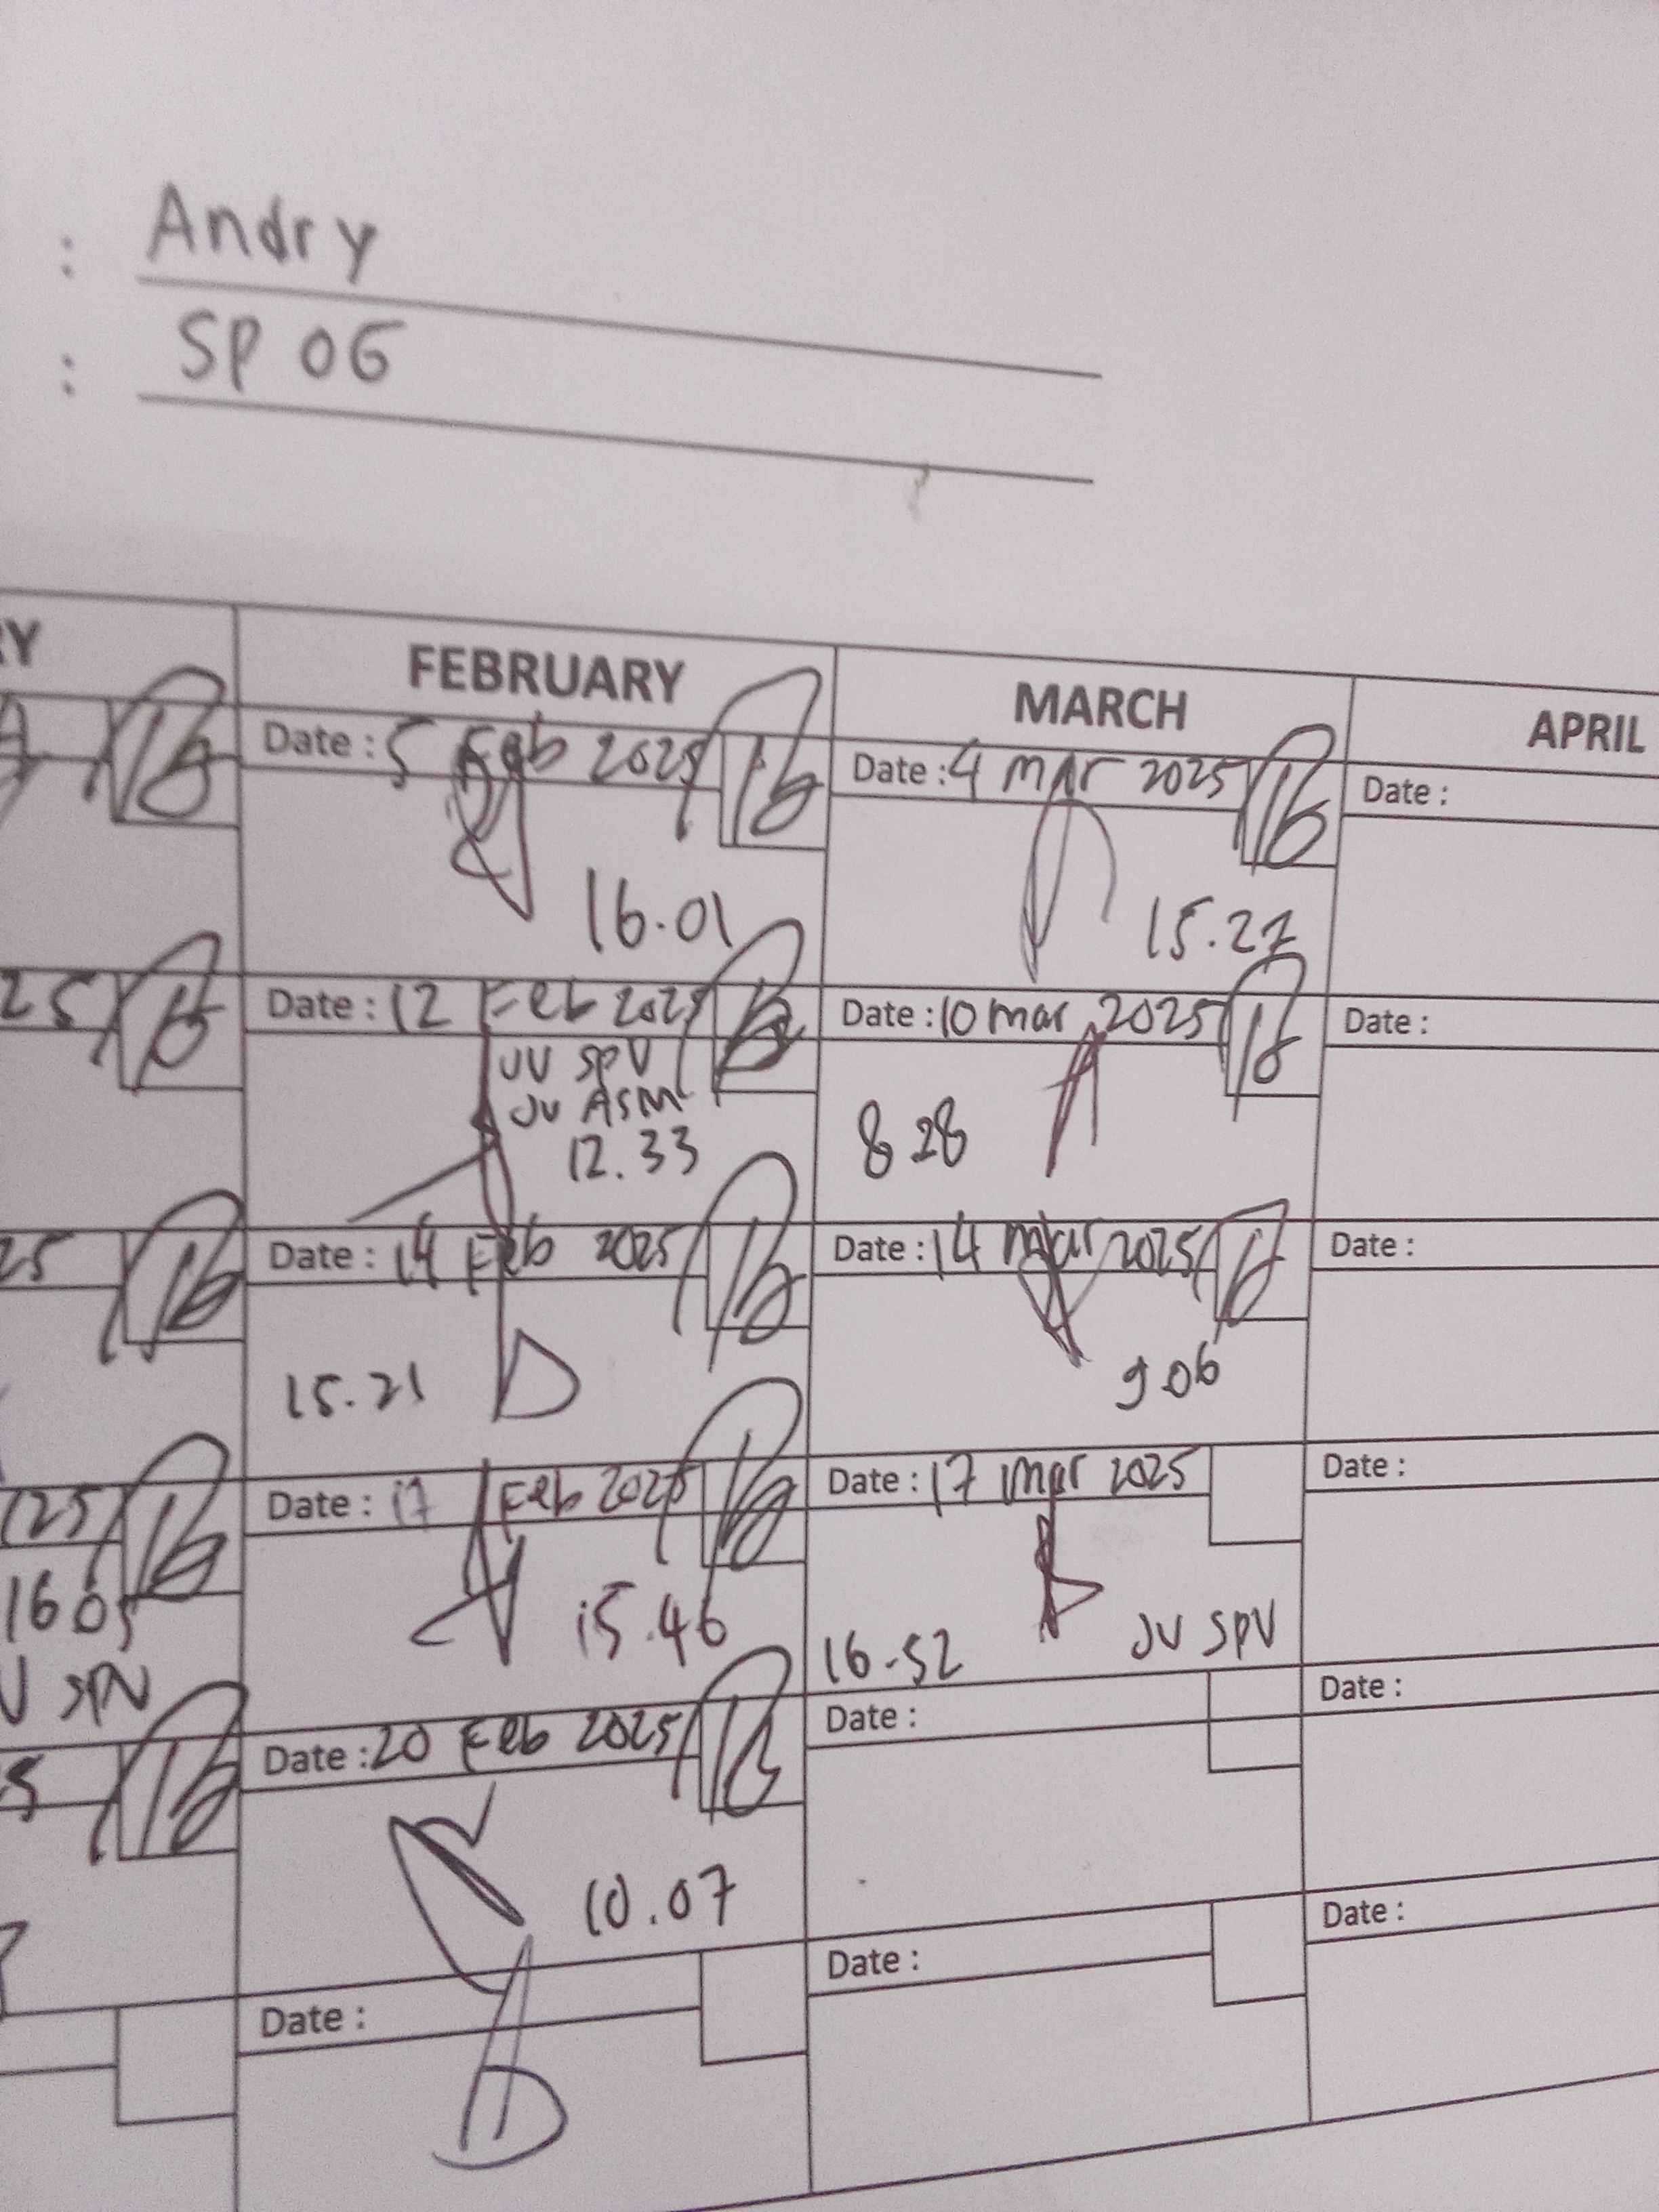 : Andry
: SP 06
RY
FEBRUARY
MARCH
APRIL
Date : 5 Feb 2025
Date : 4 mar 2025
Date :
16.01
15.27
25
Date : 12 Feb 2025
Date : 10 mar 2025
Date :
JV SPV
JV ASM
12.33
8 28
25
Date : 14 Feb 2025
Date : 14 Mar 2025
Date :
15.21
9 06
25
Date : 17 Feb 2025
Date : 17 Mar 2025
Date :
16 05
15.46
16.52
JV SPV
V SPV
5
Date : 20 Feb 2025
Date :
Date :
10.07
Date :
Date :
Date :